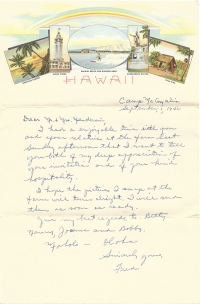 HAWAII
Camp McCoy, Wis
September 1, 1942
Dear Mr & Mrs
I had so enjoyable time with you
and your relatives at the farm last
Sunday afternoon that I want to tell
you both of my deep appreciation of
your invitation and of your kind
hospitality.
I hope the pictures I snap at the
farm will turn alright. I will send
them as soon as ready.
Give my best regards to Betty,
Nancy, Joanne and Bobby.
Mahalo - Aloha
Sincerely yours,